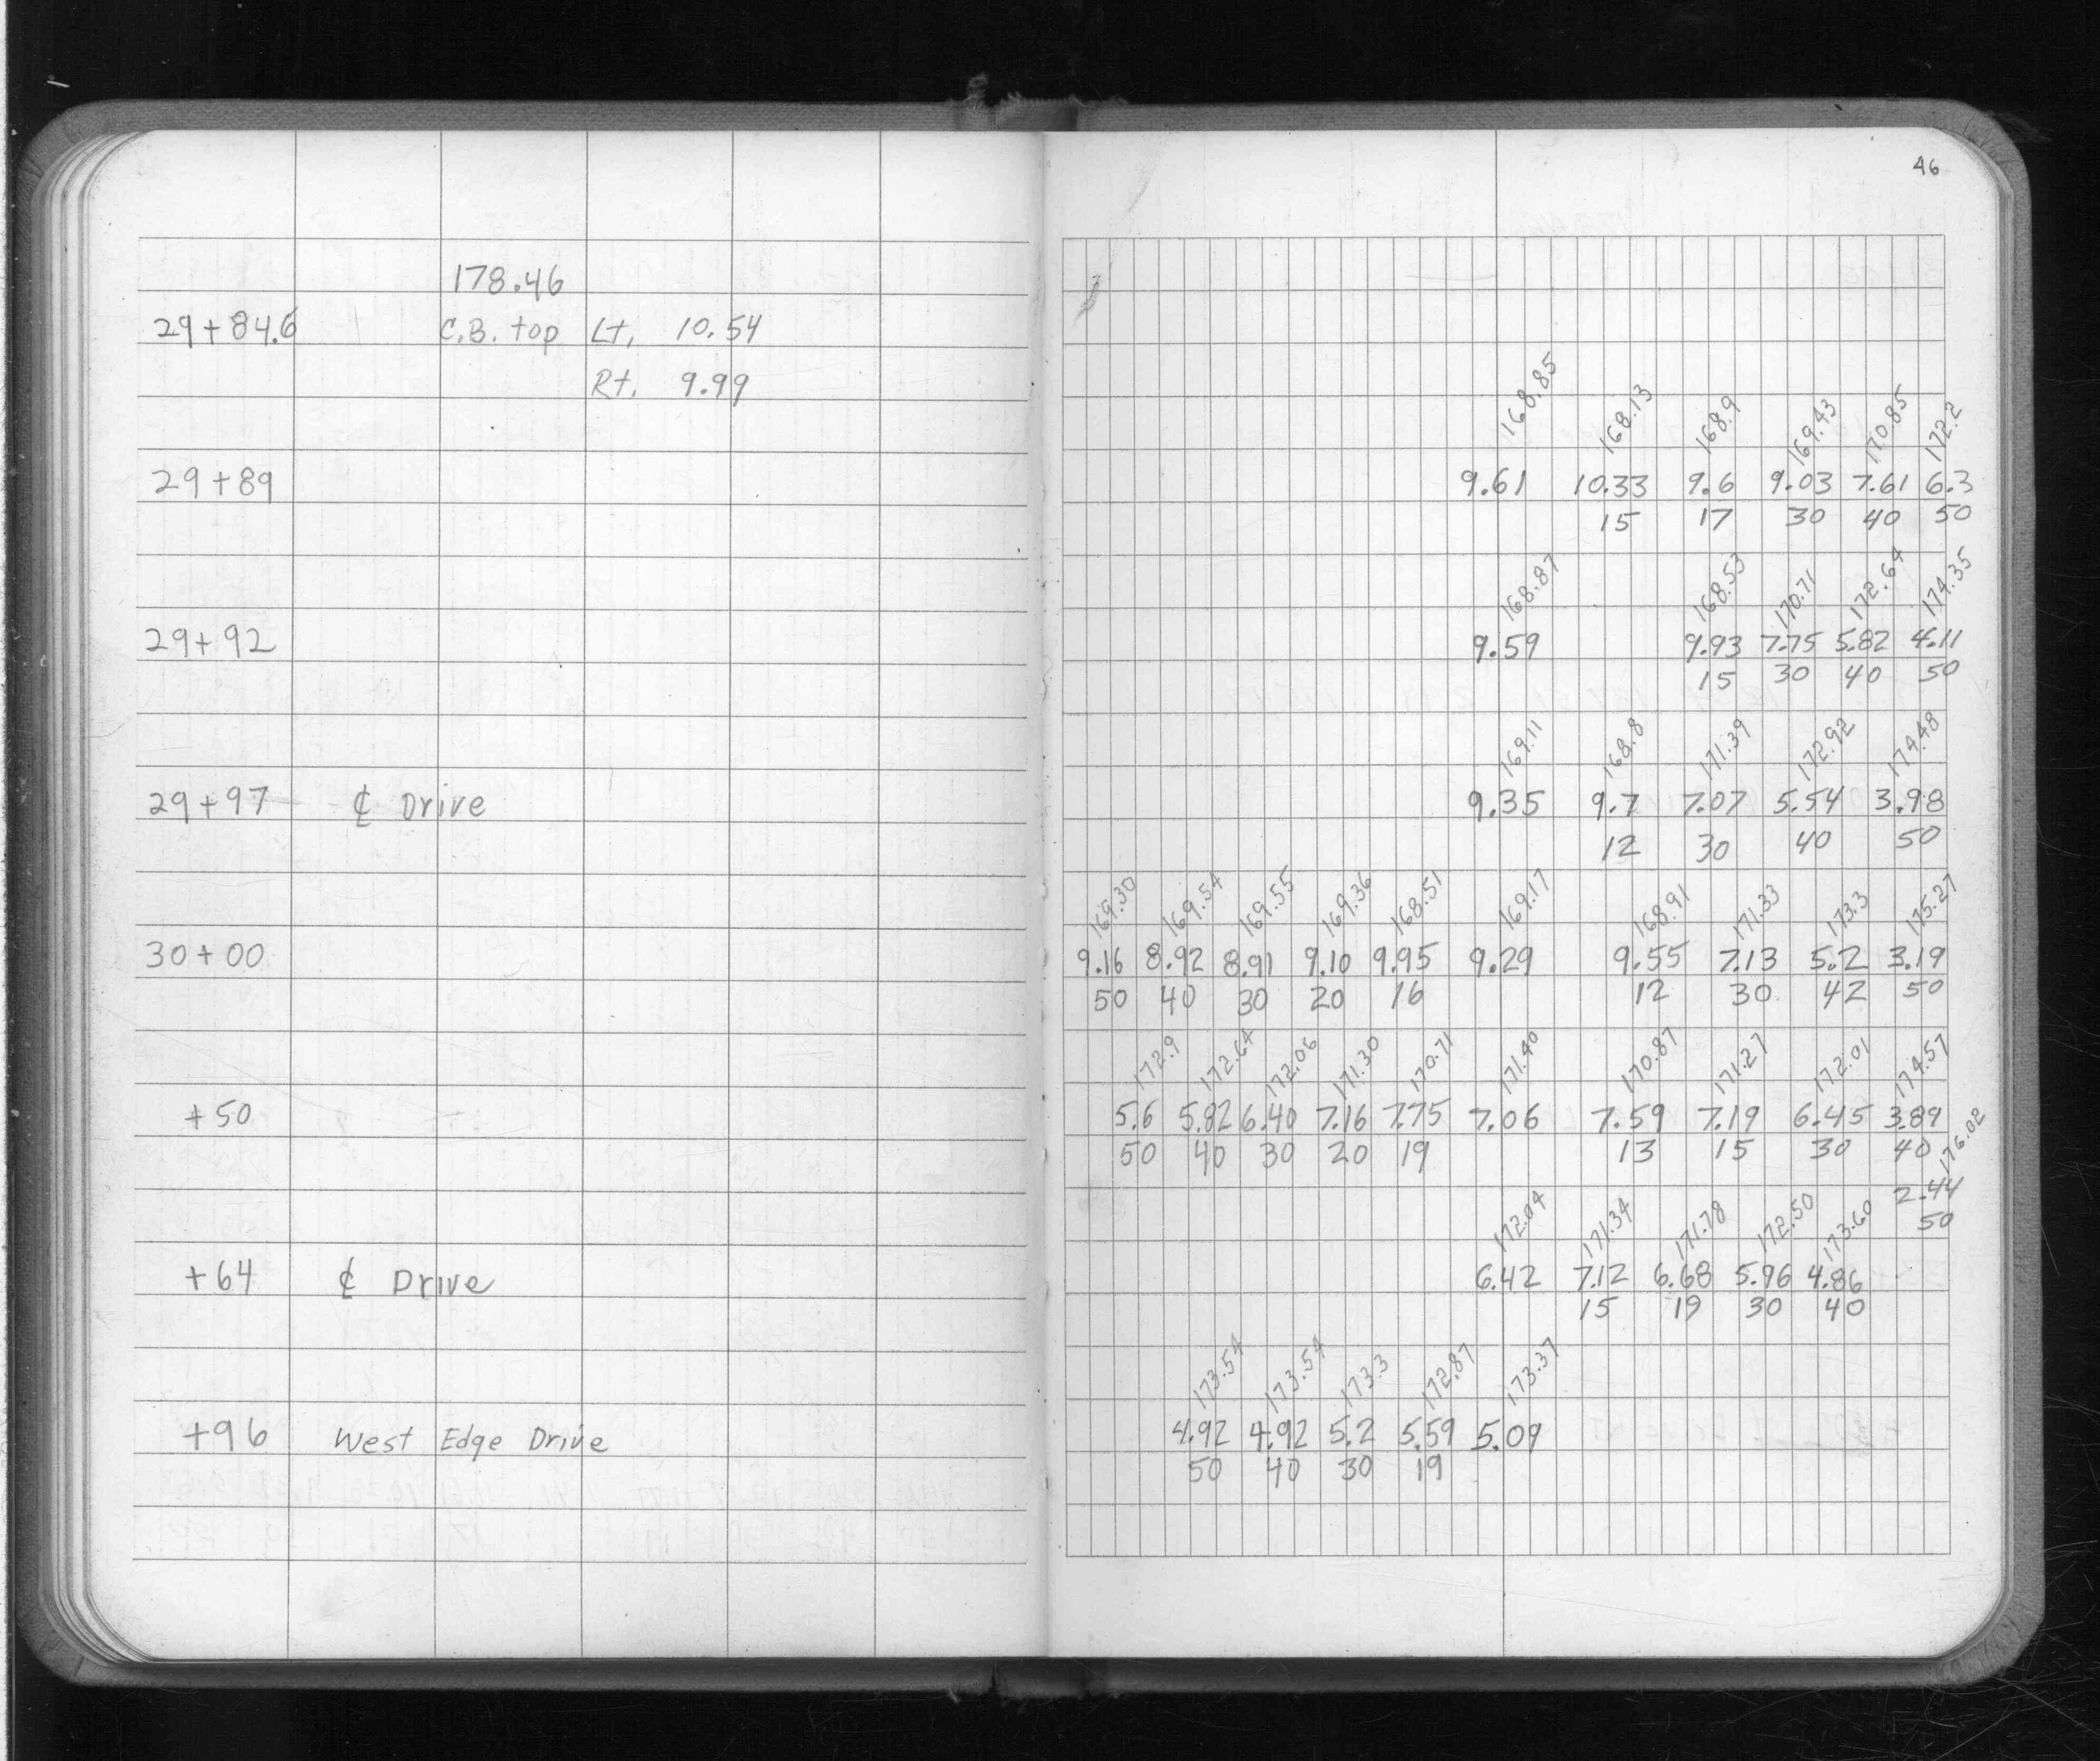 46
178.46
29+84.6 C.B. top Lt. 10.54
Rt. 9.99
168.85 168.13 168.9 169.43 170.85 172.2
29+89 9.61 10.33 9.6 9.03 7.61 6.3
15 17 30 40 50
168.87 168.53 170.71 172.64 174.35
29+92 9.59 9.93 7.75 5.82 4.11
15 30 40 50
169.11 168.8 171.39 172.92 174.48
29+97 ℄ Drive 9.35 9.7 7.07 5.54 3.98
12 30 40 50
169.30 169.54 169.55 169.36 168.51 169.17 168.91 171.33 173.3 175.27
30+00 9.16 8.92 8.91 9.10 9.95 9.29 9.55 7.13 5.2 3.19
50 40 30 20 16 12 30 42 50
172.9 172.64 172.06 171.30 170.71 171.40 170.87 171.27 172.01 174.57
+50 5.6 5.82 6.40 7.16 7.75 7.06 7.59 7.19 6.45 3.89
50 40 30 20 19 13 15 30 40
176.02
2.44
50
172.04 171.34 171.78 172.50 173.60
+64 ℄ Drive 6.42 7.12 6.68 5.96 4.86
15 19 30 40
173.54 173.54 173.3 172.87 173.37
+96 West Edge Drive 4.92 4.92 5.2 5.59 5.09
50 40 30 19